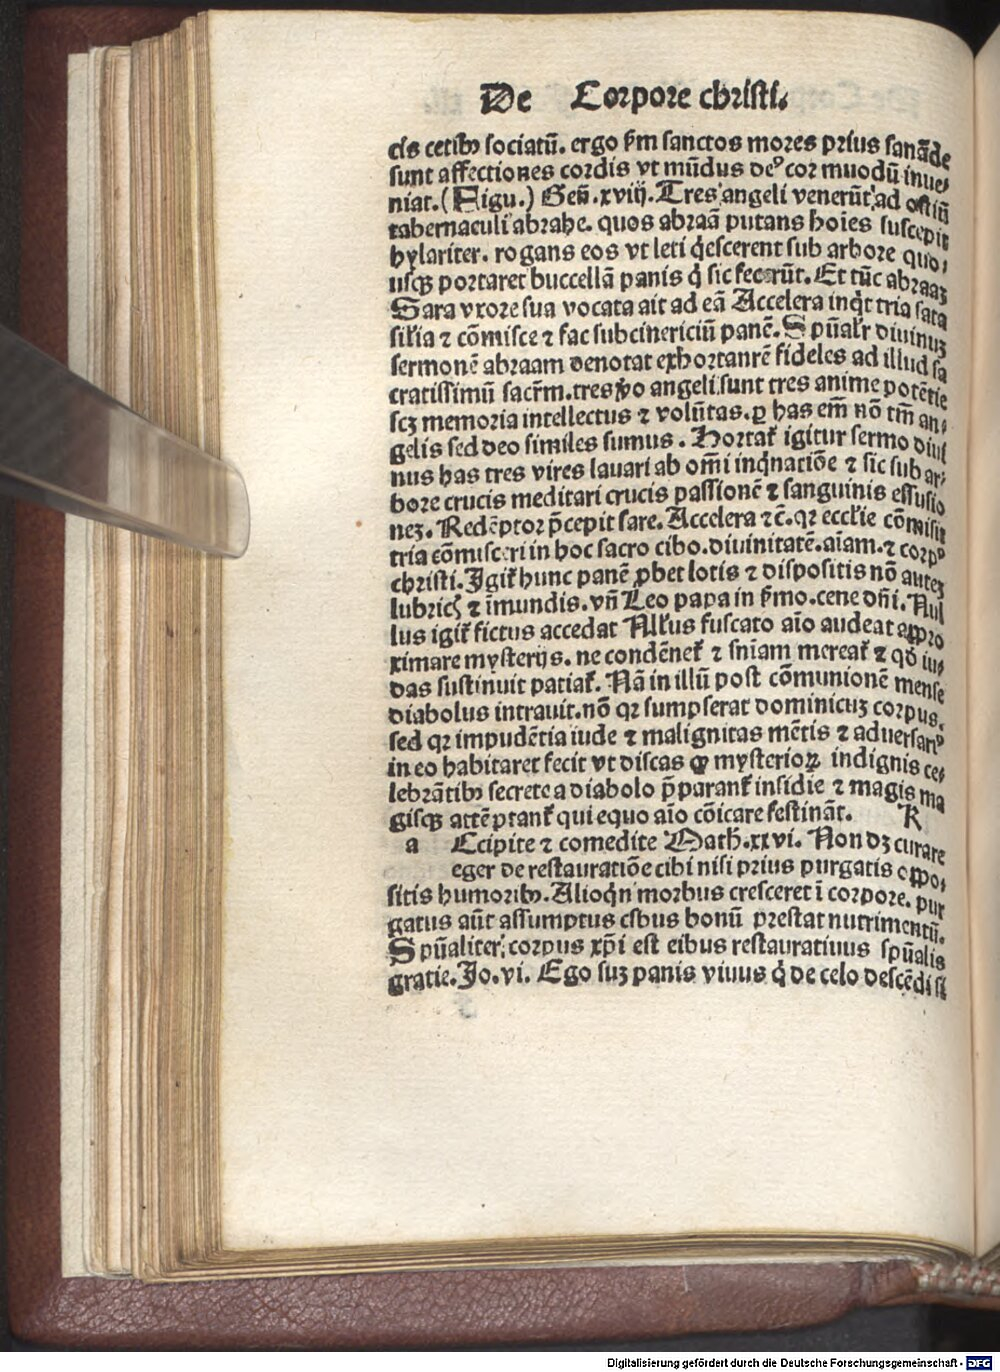 De Corpore christi.
cis cetibꝰ sociatū. ergo ẜm sanctos mores prius sanāde
sunt affectiones cordis vt mūdus deꝰ cor muodū inue⸗
niat. (Figu.) Geñ. xviij. Tres angeli venerūt ad ostiū
tabernaculi abrahe. quos abraā putans hoīes suscepit
hylariter. rogans eos vt leti q̇escerent sub arbore quo⸗
usqꝫ portaret buccellā panis q̇ sic fecerūt. Et tūc abraaꝫ
Sara vxore sua vocata ait ad eā Accelera inq̇t tria sata
sil̄ia ⁊ cōmisce ⁊ fac subcinericiū panē. Spūalr̄ diuinuꝫ
sermonē abraam denotat exhortanrē fideles ad illud sa
cratissimū sacr̄m. tres ꝟo angeli sunt tres anime potētie
scꝫ memoria intellectus ⁊ volūtas. ꝑ has em̄ nō tm̄ an⸗
gelis sed deo similes sumus. Hortat̄ igitur sermo diui
nus has tres vires lauari ab om̄i inq̇natiōe ⁊ sic sub ar⸗
bore crucis meditari crucis passionē ⁊ sanguinis effusio
neꝫ. Redēptor p̄cepit sare. Accelera ⁊c̄. qꝛ eccl̄ie cōmisit
tria cōmisceri in hoc sacro cibo. diuinitatē. aīam. ⁊ corpꝰ
christi. Igit̄ hunc panē p̱bet lotis ⁊ dispositis nō auteꝫ
lubricꝭ ⁊ īmundis. vn̄ Leo papa in ẜmo. cene dn̄i. Nul
lus igit̄ fictus accedat Nll̄us fuscato aīo audeat appro
ximare mysterijs. ne condēnet̄ ⁊ sn̄iam mereat̄ ⁊ qđ iu⸗
das sustinuit patiat̄. Nā in illū post cōmunionē mense
diabolus intrauit. nō qꝛ sumpserat dominicuꝫ corpus.
sed qꝛ impudētia iude ⁊ malignitas mētis ⁊ aduersariꝰ
in eo habitaret fecit vt discas ꝙ mysterioꝝ indignis ce⸗
lebrātibꝰ secrete a diabolo p̄parant̄ insidie ⁊ magis ma
gisqꝫ attēptant̄ qui equo aīo cōicare festināt. R
a Ccipite ⁊ comedite Math. xxvi. Non dꝫ curare
eger de restauratiōe cibi nisi prius purgatis oppo⸗
sitis humoribꝰ. Alioq̇n morbus cresceret ī corpore. pur
gatus aūt assumptus cibus bonū prestat nutrimentū.
Spūaliter, corpus xp̄i est cibus restauratiuus spūalis
gratie. Jo. vi. Ego suꝫ panis viuus q̇ de celo descēdi si
Digitalisierung gefördert durch die Deutsche Forschungsgemeinschaft - DFG